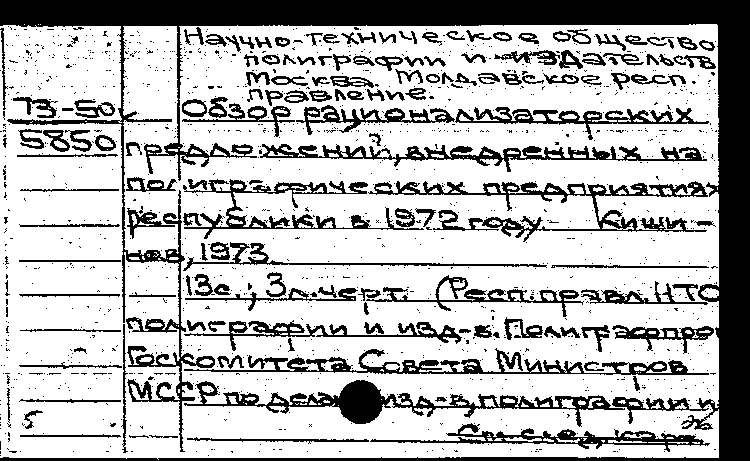 Научно-техническое общество
полиграфии и издательств
Москва. Молдавское респ.
правление.
73-50 Обзор рационализаторских
5850 предложений, внедренных на
полиграфических предприятиях
республики в 1972 году. Киши-
нев, 1973.
13с.; 3л.черт. (Респ.правл.НТО
полиграфии и изд-в. Полиграфпро
Госкомитета Совета Министров
МССР по делам изд-в, полиграфии и
5
См. след. карт.